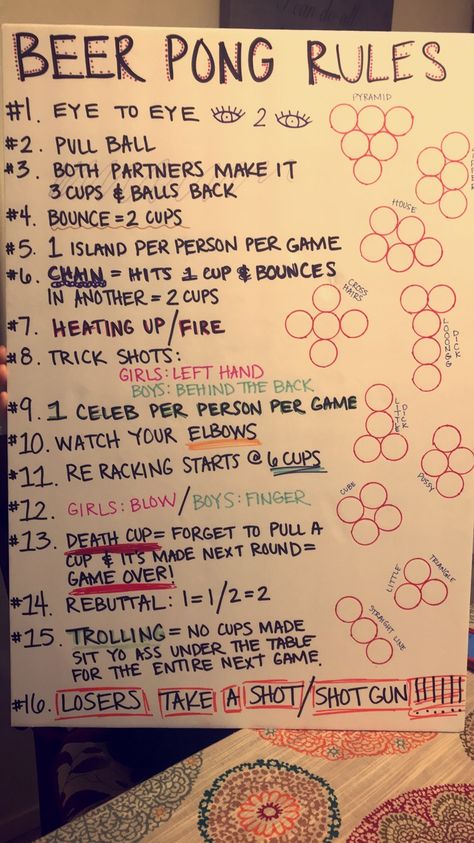 BEER PONG RULES
#1. EYE TO EYE 2
#2. PULL BALL
#3. BOTH PARTNERS MAKE IT
3 CUPS & BALLS BACK
#4. BOUNCE = 2 CUPS
#5. 1 ISLAND PER PERSON PER GAME
#6. CHAIN = HITS 1 CUP & BOUNCES
IN ANOTHER = 2 CUPS
#7. HEATING UP/FIRE
#8. TRICK SHOTS:
GIRLS: LEFT HAND
BOYS: BEHIND THE BACK
#9. 1 CELEB PER PERSON PER GAME
#10. WATCH YOUR ELBOWS
#11. RE RACKING STARTS @ 6 CUPS
#12. GIRLS: BLOW/BOYS: FINGER
#13. DEATH CUP = FORGET TO PULL A
CUP & IT'S MADE NEXT ROUND =
GAME OVER!
#14. REBUTTAL: 1=1/2=2
#15. TROLLING = NO CUPS MADE
SIT YO ASS UNDER THE TABLE
FOR THE ENTIRE NEXT GAME.
#16. LOSERS TAKE A SHOT/SHOTGUN !!!!!!
PYRAMID
HOUSE
CROSS
HAIRS
LOOONGG
DICK
LITTLE
DICK
PUSSY
CUBE
LITTLE
TRIANGLE
STRAIGHT LINE